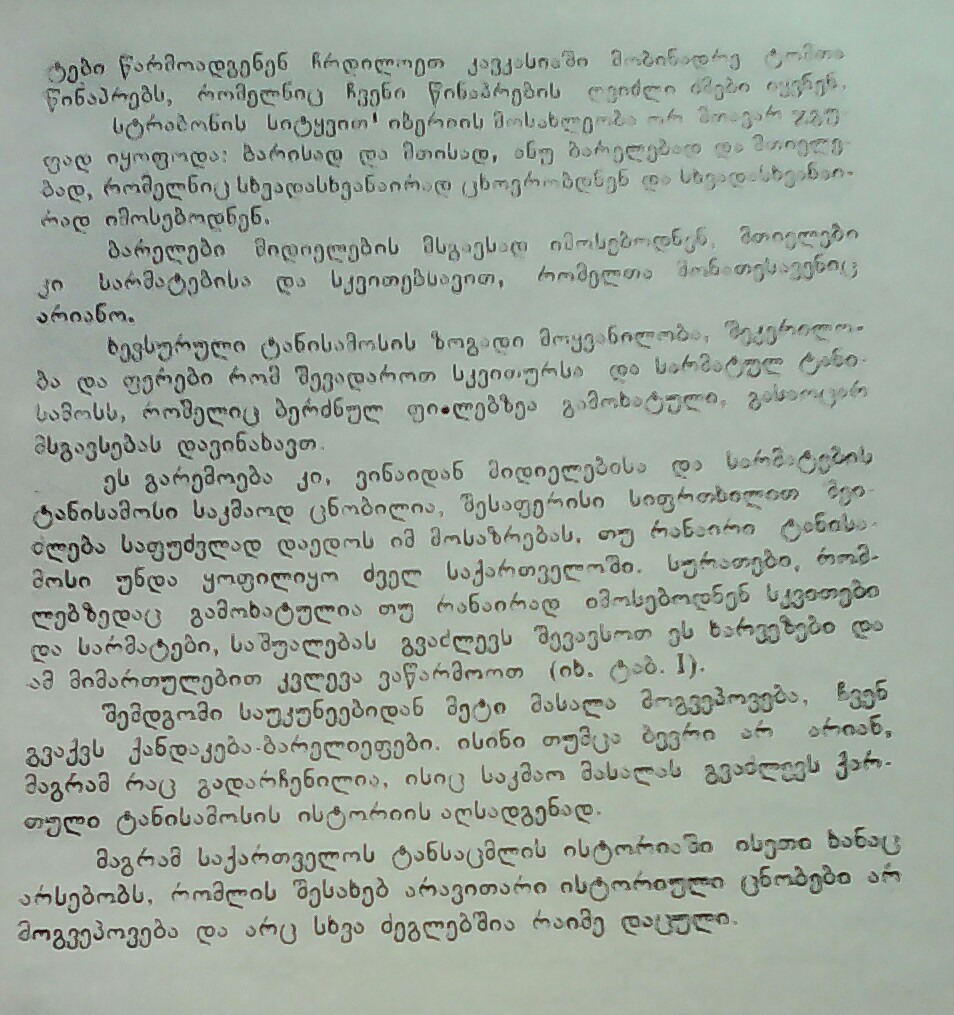 ტები წარმოადგენენ ჩრდილოეთ კავკასიაში მობინადრე ტომთა
წინაპრებს, რომელნიც ჩვენი წინაპრების ღვიძლი ძმები იყვნენ.
სტრაბონის სიტყვით¹ იბერიის მოსახლეობა ორ მთავარ ჯგუ-
ფად იყოფოდა: ბარისად და მთისად, ანუ ბარელებად და მთიელე-
ბად, რომელნიც სხვადასხვანაირად ცხოვრობდნენ და სხვადასხვანაი-
რად იმოსებოდნენ.
ბარელები მიდიელების მსგავსად იმოსებოდნენ, მთიელები
კი სარმატებისა და სკვითებსავით, რომელთა მონათესავენიც
არიანო.
ხევსურული ტანისამოსის ზოგადი მოყვანილობა, შეკერილო-
ბა და ფერები რომ შევადაროთ სკვითურსა და სარმატულ ტანი-
სამოსს, რომელიც ბერძნულ ფიალებზეა გამოხატული, გასაოცარ
მსგავსებას დავინახავთ.
ეს გარემოება კი, ვინაიდან მიდიელებისა და სარმატების
ტანისამოსი საკმაოდ ცნობილია, შესაფერისი სიფრთხილით შეი-
ძლება საფუძვლად დაედოს იმ მოსაზრებას, თუ რანაირი ტანისა-
მოსი უნდა ყოფილიყო ძველ საქართველოში. სურათები, რომ-
ლებზედაც გამოხატულია თუ რანაირად იმოსებოდნენ სკვითები
და სარმატები, საშუალებას გვაძლევს შევავსოთ ეს ხარვეზები და
ამ მიმართულებით კვლევა ვაწარმოოთ (იხ. ტაბ. I).
შემდგომი საუკუნეებიდან მეტი მასალა მოგვეპოვება, ჩვენ
გვაქვს ქანდაკება-ბარელიეფები. ისინი თუმცა ბევრი არ არიან,
მაგრამ რაც გადარჩენილია, ისიც საკმაო მასალას გვაძლევს ქარ-
თული ტანისამოსის ისტორიის აღსადგენად.
მაგრამ საქართველოს ტანსაცმლის ისტორიაში ისეთი ხანაც
არსებობს, რომლის შესახებ არავითარი ისტორიული ცნობები არ
მოგვეპოვება და არც სხვა ძეგლებშია რაიმე დაცული.